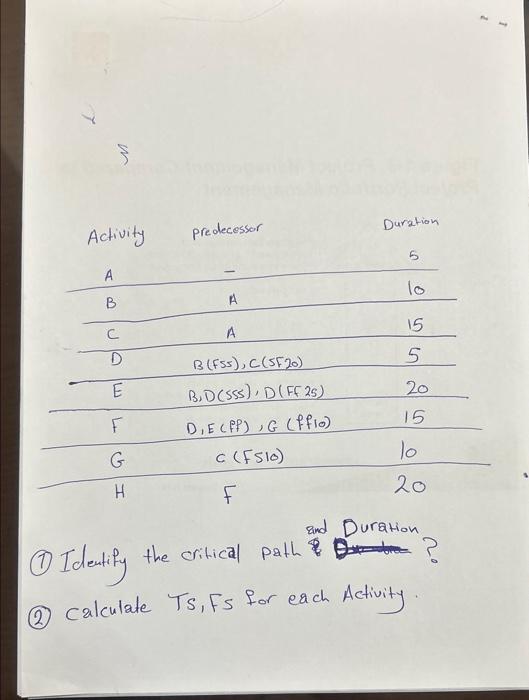 Activity predecessor Duration
A - 5
B A 10
C A 15
D B(FS5), C(SF20) 5
E B, D(SS5), D(FF25) 20
F D, E(FF), G(ff10) 15
G C(FS10) 10
H F 20
① Identify the critical path and Duration ?
② Calculate TS, FS for each Activity.